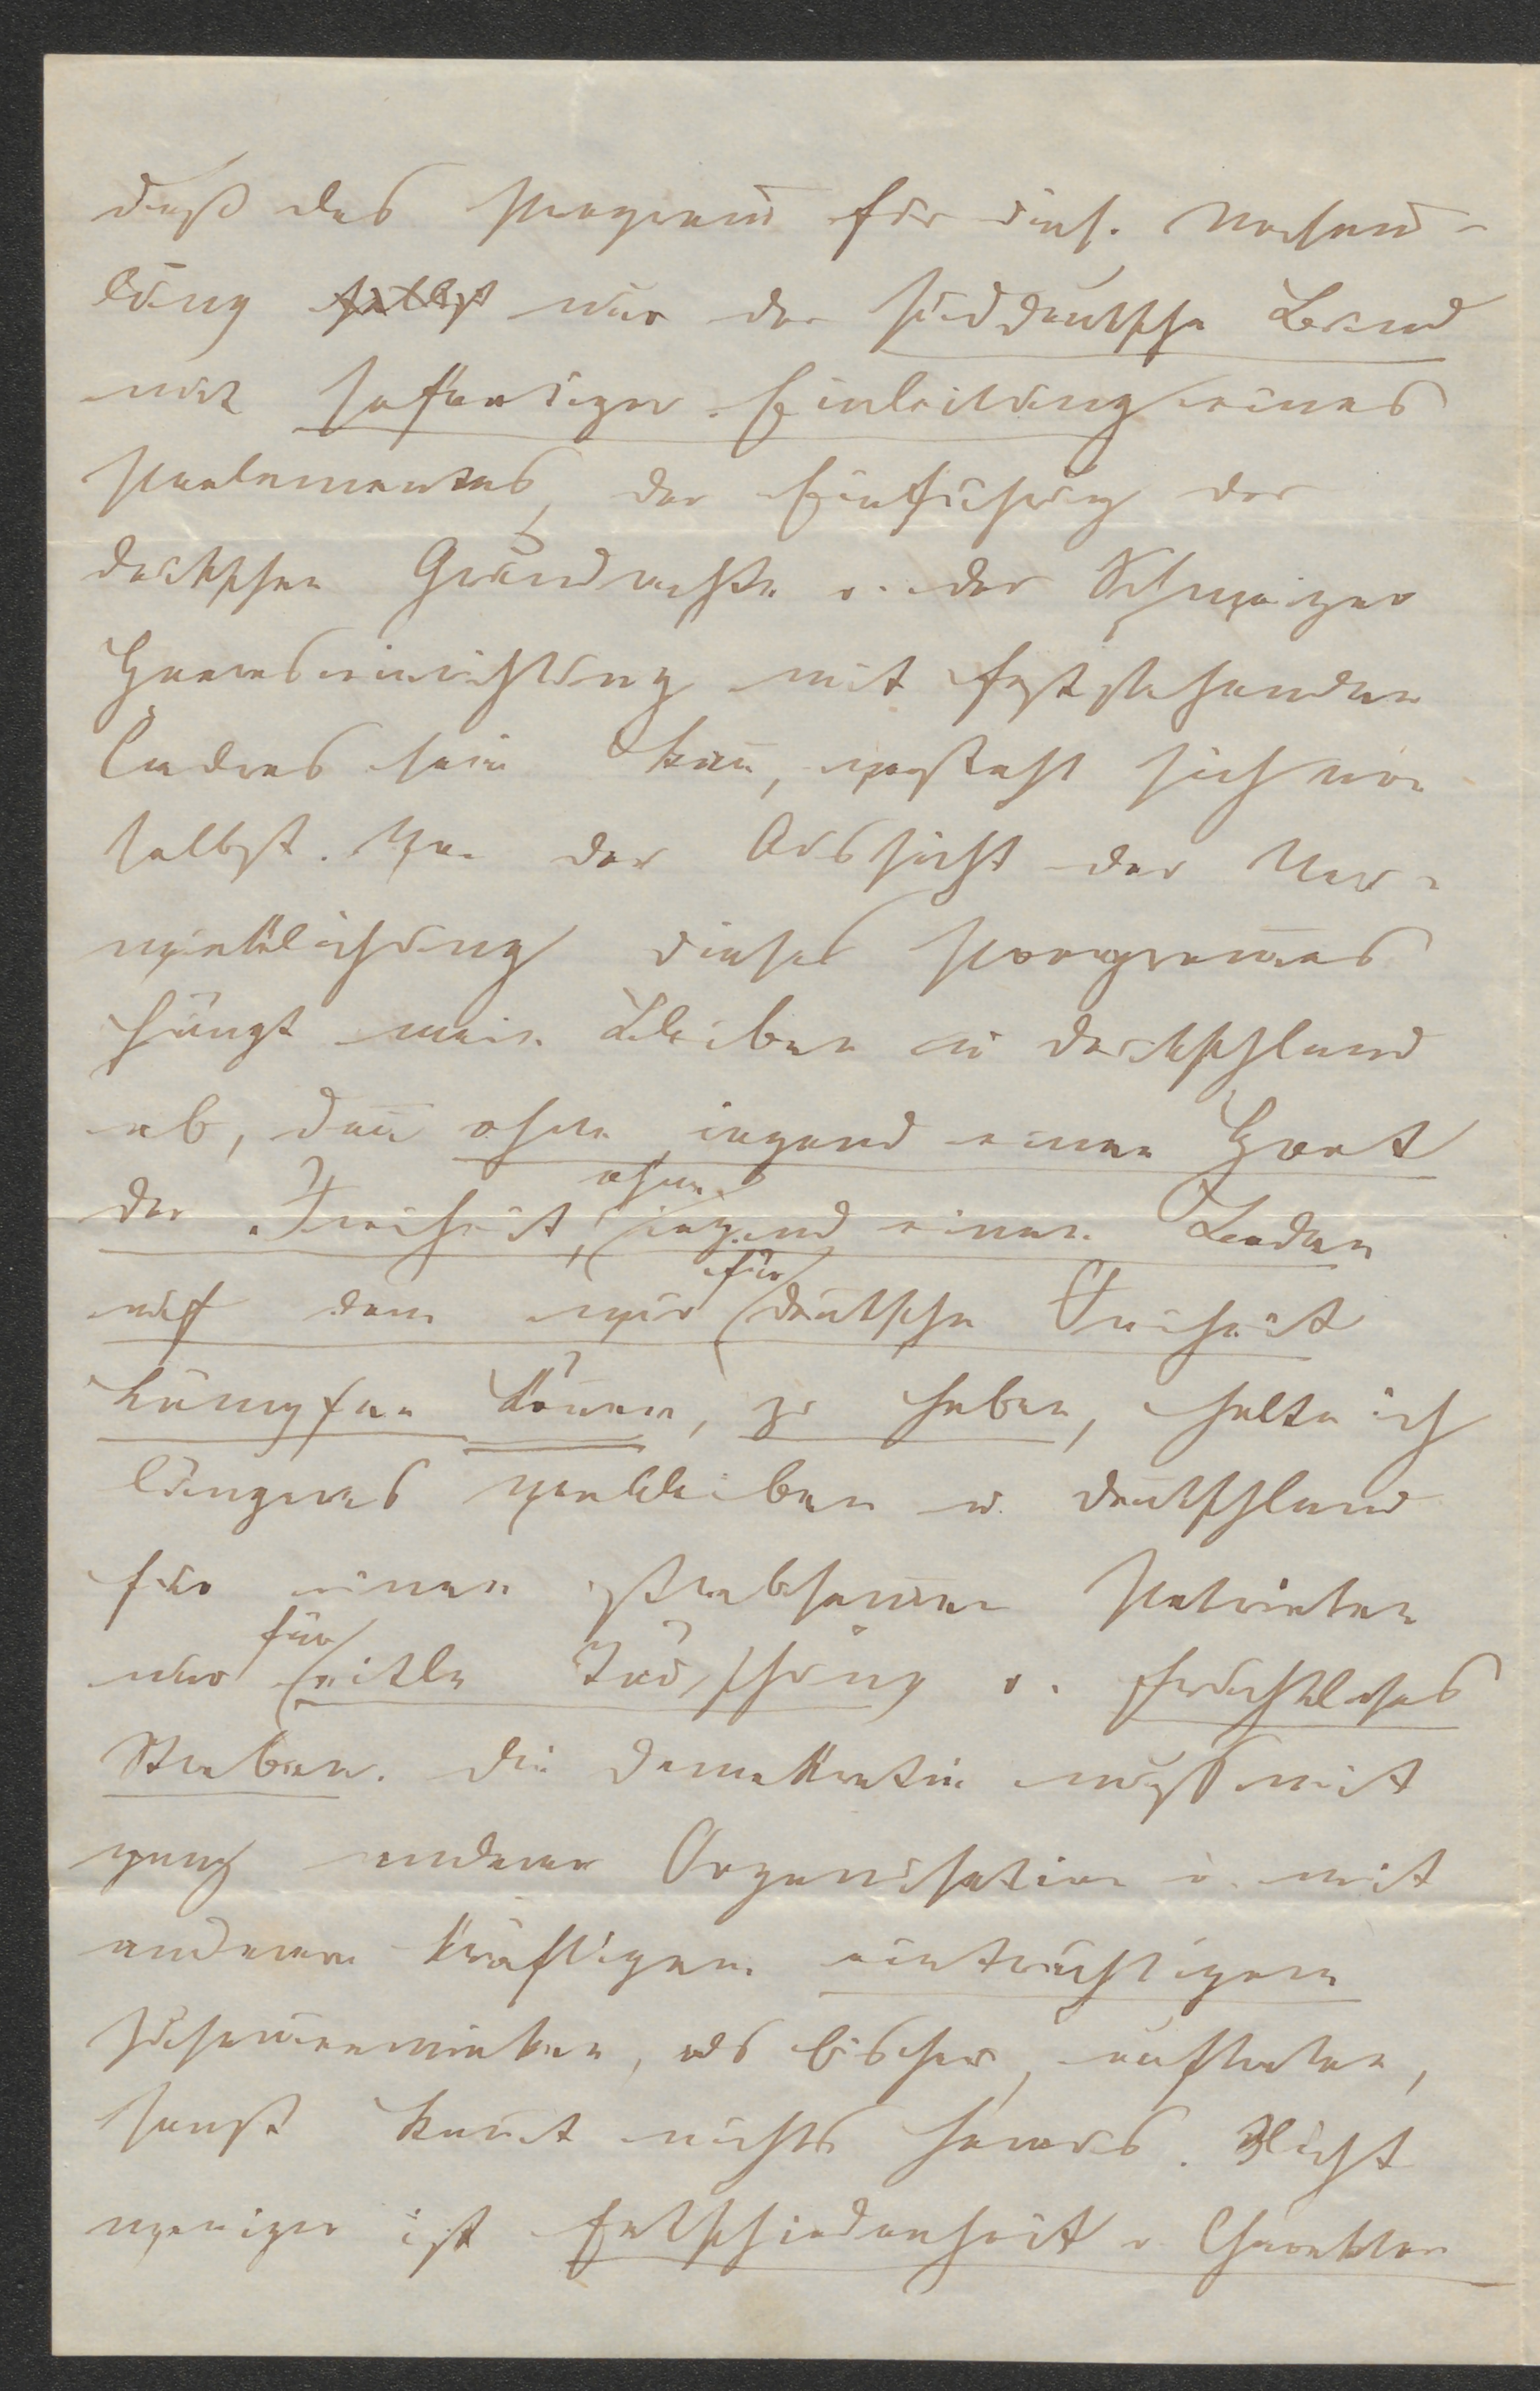 daß das Programm für diese Versamm-
lung selbst nur der süddeutsche Bund
mit sofortiger Einleitung eines
Parlamentes, der Einführung der
deutschen Grundrechte u. der Schweizer
Heereseinrichtung mit feststehenden
Cadres sein kann, versteht sich von
selbst. Von der Aussicht der Ver-
wirklichung dieses Programmes
hängt mein Bleiben in Deutschland
ab, denn ohne irgend einen Hort
der Freiheit, ohne irgend einen Boden
auf dem wir für deutsche Freiheit
kämpfen können, zu haben, halte ich
längeres Verbleiben in Deutschland
für einen strebsamen Patrioten
nur für eitle Täuschung u. fruchtloses
Streben. Die Demokratie muß mit
ganz anderer Organisation u. mit
anderem kräftigem einträchtigem
Zusammenwirken, als bisher, auftreten,
sonst kommt nichts heraus. Nicht
weniger ist Entschiedenheit u. Charakter